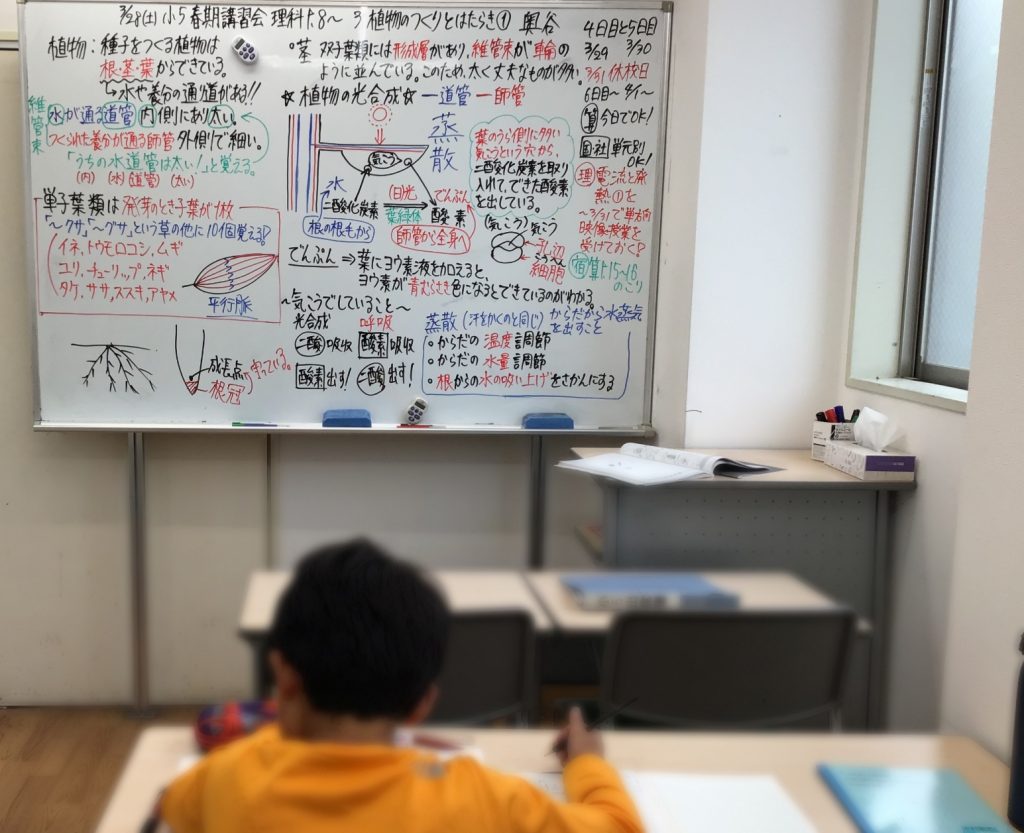 3/28(土) 小5 春期講習会 理科 P.8～ 3 植物のつくりとはたらき① 奥谷
植物：種子をつくる植物は
根・茎・葉からできている。
↳水や養分の通り道がある!!
維管束
水が通る道管 内側にあり太い。
つくられた養分が通る師管 外側で細い。
「うちの水道管は太い！」と覚える。
(内) (水)(道管) (太い)
単子葉類は発芽のとき子葉が1枚
「～クサ」「～グサ」という草の他に10個覚える!
イネ、トウモロコシ、ムギ
ユリ、チューリップ、ネギ
タケ、ササ、ススキ、アヤメ
平行脈
成長点
根冠
守っている。
°茎 双子葉類には形成層があり、維管束が車輪の
ように並んでいる。このため、太く丈夫なものが多い。
☆植物の光合成☆ ー道管 ー師管
蒸散
気こう
水
二酸化炭素
(日光)
葉緑体
でんぷん
酸素
根の根毛から
師管から全身へ
葉のうら側に多い
気こうという穴から、
二酸化炭素を取り
入れて、できた酸素
を出している。
(気こう) 気こう
孔辺
細胞
でんぷん ⇒ 葉にヨウ素液を加えると、
ヨウ素が青むらさき色になるとできているのがわかる。
～気こうでしていること～
光合成 呼吸
二酸吸収 酸素吸収
酸素出す! 二酸出す!
蒸散(汗をかくのと同じ) からだから水蒸気
を出すこと
◦からだの温度調節
◦からだの水量調節
◦根からの水の吸い上げをさかんにする
4日目と5日目
3/29 3/30
3/31 休校日
6日目～4/1～
算 今日でOK!
国・社 単元別
OK!
理 電流と発
熱①を
～3/31で単方向
映像授業を
受けておく!
宿 算P.15～16
のこり